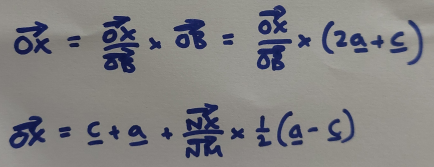 OX⃗ = OX⃗/OB⃗ × OB⃗ = OX⃗/OB⃗ × (2a̲ + c̲)
OX⃗ = c̲ + a̲ + NX⃗/NM⃗ × ½(a̲ - c̲)